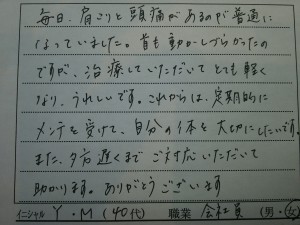 毎日、肩こりと頭痛があるのが普通に
なっていました。首も動かしづらかったの
ですが、治療していただいてとても軽く
なり、うれしいです。これからは、定期的に
メンテを受けて、自分の体を大切にしたいです。
また、夕方遅くまでご対応いただいて
助かります。ありがとうございます
イニシャル Y・M (40代) 職業 会社員 (男・女)